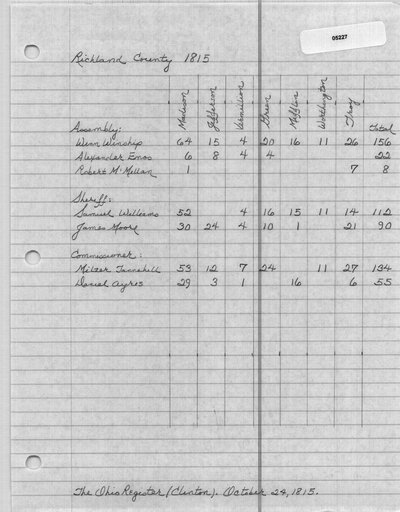 05227
Richland County 1815
Madison Jefferson Vermillion Green Mifflin Worthington Troy
Assembly: Total
Winn Winship 64 15 4 20 16 11 26 156
Alexander Enos 6 8 4 4 22
Robert McMillan 1 7 8
Sheriff:
Samuel Williams 52 4 16 15 11 14 112
James Moore 30 24 4 10 1 21 90
Commissioner:
Melzer Tannehill 53 12 7 24 11 27 134
Daniel Ayres 29 3 1 16 6 55
The Ohio Register (Clinton). October 24, 1815.